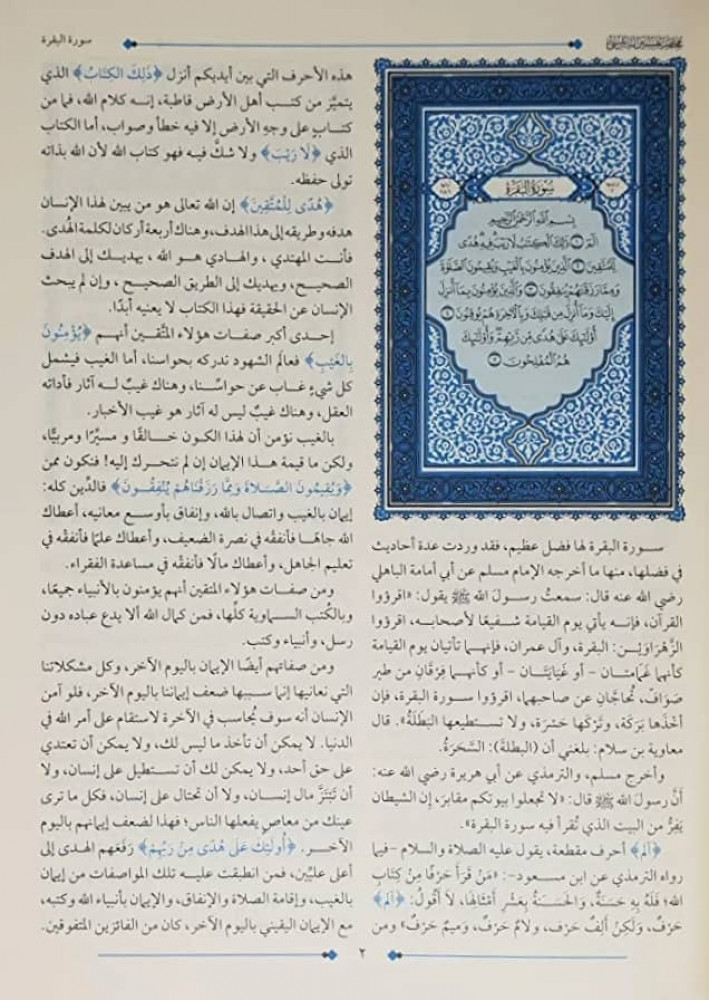 سورة البقرة
سُورَةُ البَقَرَةِ
بِسْمِ اللَّهِ الرَّحْمَٰنِ الرَّحِيمِ
الٓمٓ ١ ذَٰلِكَ ٱلْكِتَٰبُ لَا رَيْبَ فِيهِ هُدًى
لِّلْمُتَّقِينَ ٢ ٱلَّذِينَ يُؤْمِنُونَ بِٱلْغَيْبِ وَيُقِيمُونَ ٱلصَّلَوٰةَ
وَمِمَّا رَزَقْنَٰهُمْ يُنفِقُونَ ٣ وَٱلَّذِينَ يُؤْمِنُونَ بِمَآ أُنزِلَ
إِلَيْكَ وَمَآ أُنزِلَ مِن قَبْلِكَ وَبِٱلْأَخِرَةِ هُمْ يُوقِنُونَ ٤
أُوْلَٰٓئِكَ عَلَىٰ هُدًى مِّن رَّبِّهِمْ وَأُوْلَٰٓئِكَ
هُمُ ٱلْمُفْلِحُونَ ٥
سورة البقرة لها فضل عظيم، فقد وردت عدة أحاديث
في فضلها، منها ما أخرجه الإمام مسلم عن أبي أمامة الباهلي
رضي الله عنه قال: سمعتُ رسولَ الله ﷺ يقول: «اقرؤوا
القرآن، فإنه يأتي يوم القيامة شفيعًا لأصحابه، اقرؤوا
الزَّهْرَاوَيْن: البقرة، وآل عمران، فإنهما تأتيان يوم القيامة
كأنهما غَمَامتان – أو غَيَايَتَان – أو كأنهما فِرْقَانِ من طير
صَوَافّ، تُحاجَّانِ عن صاحبهما، اقرؤوا سورة البقرة، فإن
أخْذَها بَرَكَة، وتَرْكَها حَسْرَة، ولا تستطيعها البَطَلَةُ». قال
معاوية بن سلام: بلغني أن (البطلة): السَّحَرَةُ.
وأخرج مسلم، والترمذي عن أبي هريرة رضي الله عنه:
أنَّ رسولَ الله ﷺ قال: «لا تجعلوا بيوتكم مقابرَ، إن الشيطان
يَفِرُّ من البيت الذي تُقرأ فيه سورة البقرة».
﴿الٓمٓ﴾ أحرف مقطعة، يقول عليه الصلاة والسلام –فيما
رواه الترمذي عن ابن مسعود–: «مَنْ قَرَأَ حَرْفًا مِنْ كِتَابِ
الله؛ فَلَهُ بِهِ حَسَنَةٌ، وَالحَسَنَةُ بِعَشْرِ أَمْثَالِهَا، لَا أَقُولُ: ﴿الٓمٓ﴾
حَرْفٌ، وَلَكِنْ أَلِفٌ حَرْف، ولامٌ حَرْفٌ، وَمِيمٌ حَرْفٌ» ومن
هذه الأحرف التي بين أيديكم أنزل ﴿ذَلِكَ الكِتَابُ﴾ الذي
يتميَّز من كتب أهل الأرض قاطبة، إنه كلام الله، فما من
كتابٍ على وجهِ الأرض إلا فيه خطأ وصواب، أما الكتاب
الذي ﴿لَا رَيْبَ﴾ ولا شكَّ فيه فهو كتاب الله لأن الله بذاته
تولى حفظه.
﴿هُدًى لِلْمُتَّقِينَ﴾ إن الله تعالى هو من يبين لهذا الإنسان
هدفه وطريقه إلى هذا الهدف، وهناك أربعة أركان لكلمة الهُدى.
فأنت المهتدي، والهادي هو الله، يهديك إلى الهدف
الصحيح، ويهديك إلى الطريق الصحيح، وإن لم يبحث
الإنسان عن الحقيقة فهذا الكتاب لا يعنيه أبدًا.
إحدى أكبر صفات هؤلاء المتَّقين أنهم ﴿يُؤْمِنُونَ
بِالغَيْبِ﴾ فعالَم الشهود ندركه بحواسنا، أما الغيب فيشمل
كل شيءٍ غاب عن حواسِّنا، وهناك غيبٌ له آثار فأداته
العقل، وهناك غيبٌ ليس له آثار هو غيب الأخبار.
بالغيب نؤمن أن لهذا الكون خالقًا و مسيِّرًا ومربيًّا،
ولكن ما قيمة هذا الإيمان إن لم نتحرك إليه! فنكون ممن
﴿وَيُقِيمُونَ الصَّلَاةَ وَمِمَّا رَزَقْنَاهُمْ يُنْفِقُونَ﴾ فالدِّين كله:
إيمان بالغيب واتصال بالله، وإنفاق بأوسع معانيه، أعطاك
الله جاهًا فأنفقه في نصرة الضعيف، وأعطاك علمًا فأنفقه في
تعليم الجاهل، وأعطاك مالًا فأنفقه في مساعدة الفقراء.
ومن صفات هؤلاء المتقين أنهم يؤمنون بالأنبياء جميعًا،
وبالكُتب السماوية كلِّها، فمن كمال الله ألا يدع عباده دون
رسل، وأنبياء وكتب.
ومن صفاتهم أيضًا الإيمان باليوم الآخر، وكل مشكلاتنا
التي نعانيها إنما سببها ضعف إيماننا باليوم الآخر، فلو آمن
الإنسان أنه سوف يُحاسب في الآخرة لاستقام على أمر الله في
الدنيا. لا يمكن أن تأخذ ما ليس لك، ولا يمكن أن تعتدي
على حق أحد، ولا يمكن لك أن تستطيل على إنسان، ولا
أن تَبْتَزَّ مال إنسان، ولا أن تحتال على إنسان، فكل ما ترى
عينك من معاصٍ يفعلها الناس؛ فهذا لضعف إيمانهم باليوم
الآخر. ﴿أُولَئِكَ عَلَى هُدًى مِنْ رَبِّهِمْ﴾ رَفَعهم الهدى إلى
أعلى عليِّين، فمن انطبقت عليه تلك المواصفات من إيمان
بالغيب، وإقامة الصلاة والإنفاق، والإيمان بأنبياء الله وكتبه،
مع الإيمان اليقيني باليوم الآخر، كان من الفائزين المتفوقين.
٢